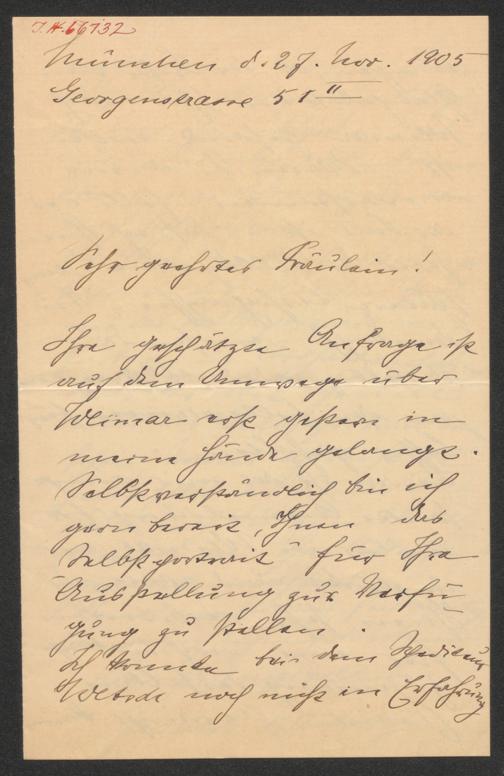 J.N. 66732
München d. 27. Nov. 1905
Georgenstrasse 51 II
Sehr geehrtes Fräulein!
Ihre geschätzte Anfrage ist
auf dem Umwege über
Weimar erst gestern in
meine Hände gelangt.
Selbstverständlich bin ich
gern bereit, Ihnen das
Selbstportrait" für Ihre
Ausstellung zur Verfü-
gung zu stellen.
Ich konnte bei dem Spediteur
noch nicht in Erfahrung